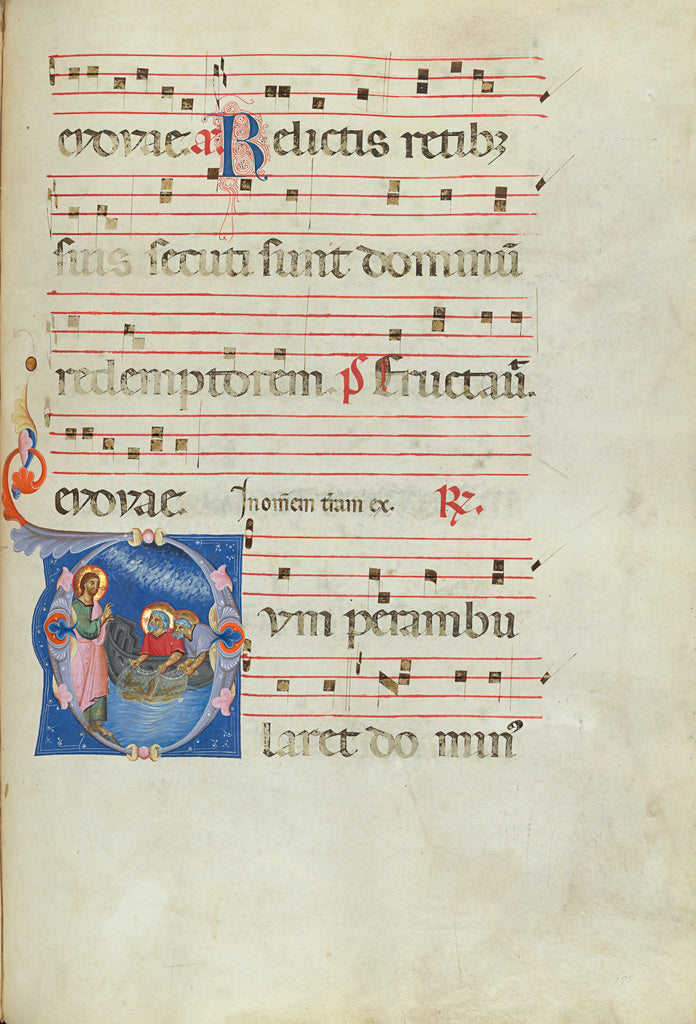 evovae. a. Relictis retibꝫ
suis secuti sunt dominū
redemptorem. ps Eructaū.
evovae. In om̄em t̄ram ex. R℣.
vm perambu
laret do minꝰ